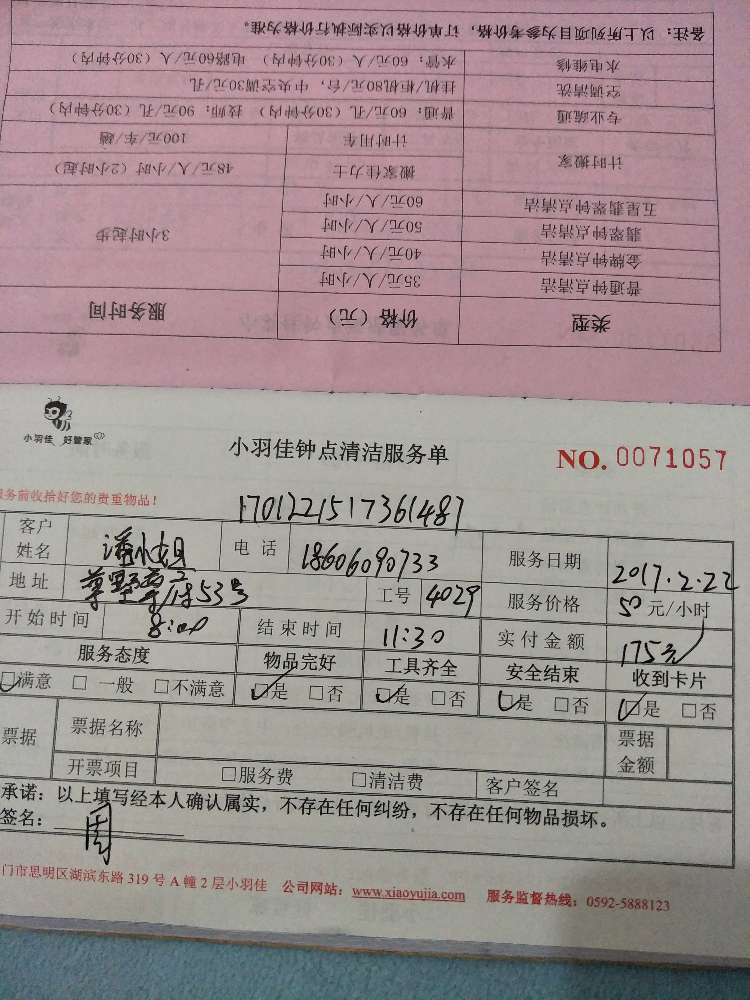 备注：以上所列项目为参考价格，订单价格以实际执行价格为准。
水电维修 水管：60元/人（30分钟内） 电路60元/人（30分钟内）
空调清洗 挂机/柜机80元/台，中央空调30元/孔
专业疏通 普通：60元/孔（30分钟内） 技师：90元/孔（30分钟内）
计时搬家 计时用车 100元/车/趟
搬家佳力士 48元/人/小时（2小时起）
五星翡翠钟点清洁 60元/人/小时
翡翠钟点清洁 50元/人/小时 3小时起步
金牌钟点清洁 40元/人/小时
普通钟点清洁 35元/人/小时
类型 价格（元） 服务时间
小羽佳 好管家
小羽佳钟点清洁服务单
NO. 0071057
服务前收拾好您的贵重物品！
1701221517361487
客户姓名 潘小姐 电话 18606090733 服务日期 2017.2.22
地址 53号 工号 4029 服务价格 50元/小时
开始时间 8:00 结束时间 11:30 实付金额 175元
服务态度 物品完好 工具齐全 安全结束 收到卡片
☑满意 □一般 □不满意 ☑是 □否 ☑是 □否 ☑是 □否 ☑是 □否
票据 票据名称 票据金额
开票项目 □服务费 □清洁费 客户签名
承诺：以上填写经本人确认属实，不存在任何纠纷，不存在任何物品损坏。
签名：周
门市思明区湖滨东路319号A幢2层小羽佳 公司网站：www.xiaoyujia.com 服务监督热线：0592-5888123